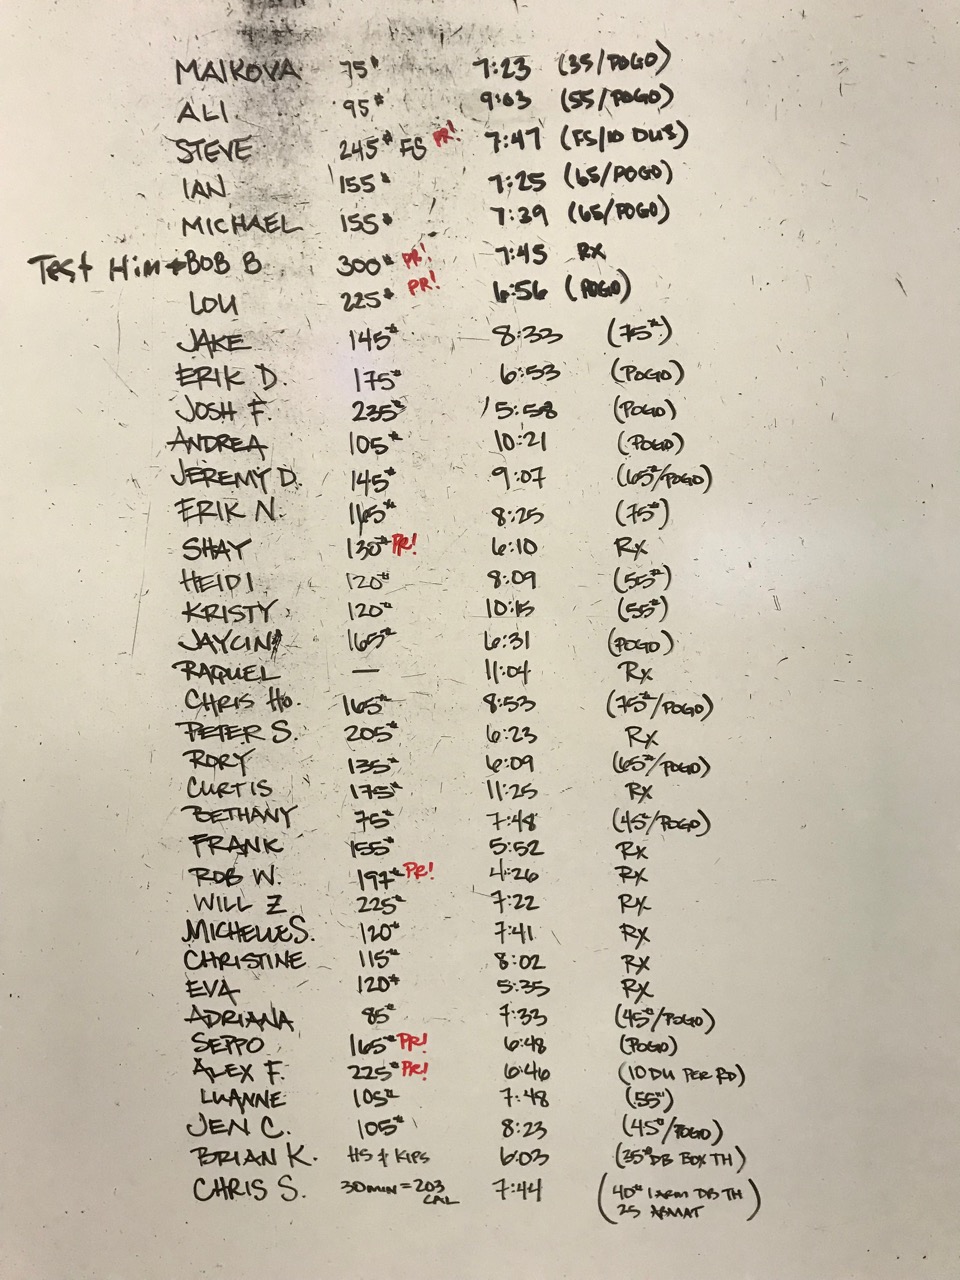 MAIKOVA 75# 7:23 (35/POGO)
ALI 95# 9:03 (55/POGO)
STEVE 245# FS PR! 7:47 (FS/10 DUS)
IAN 155# 7:25 (65/POGO)
MICHAEL 155# 7:39 (65/POGO)
Test Him → BOB B 300# PR! 7:45 RX
LOU 225# PR! 6:56 (POGO)
JAKE 145# 8:33 (75#)
ERIK D. 175# 6:53 (POGO)
JOSH F. 235# 5:58 (POGO)
ANDREA 105# 10:21 (POGO)
JEREMY D. 145# 9:07 (65#/POGO)
ERIK N. 165# 8:25 (75#)
SHAY 130# PR! 6:10 RX
HEIDI 120# 8:09 (55#)
KRISTY 120# 10:15 (55#)
JAYCIN 165# 6:31 (POGO)
RAQUEL — 11:04 RX
CHRIS HO. 165# 8:53 (75#/POGO)
PETER S. 205# 6:23 RX
RORY 135# 6:09 (65#/POGO)
CURTIS 175# 11:25 RX
BETHANY 75# 7:48 (45#/POGO)
FRANK 155# 5:52 RX
ROB W. 197# PR! 4:26 RX
WILL Z 225# 7:22 RX
MICHELLE S. 120# 7:41 RX
CHRISTINE 115# 8:02 RX
EVA 120# 5:35 RX
ADRIANA 85# 7:33 (45#/POGO)
SEPPO 165# PR! 6:48 (POGO)
ALEX F. 225# PR! 6:46 (10 DU PER RD)
LUANNE 105# 7:48 (55#)
JEN C. 105# 8:23 (45#/POGO)
BRIAN K. HS & KIPS 6:03 (35# DB BOX TH)
CHRIS S. 30 MIN = 203 CAL 7:44 (40# 1 ARM DB TH
25 ABMAT)